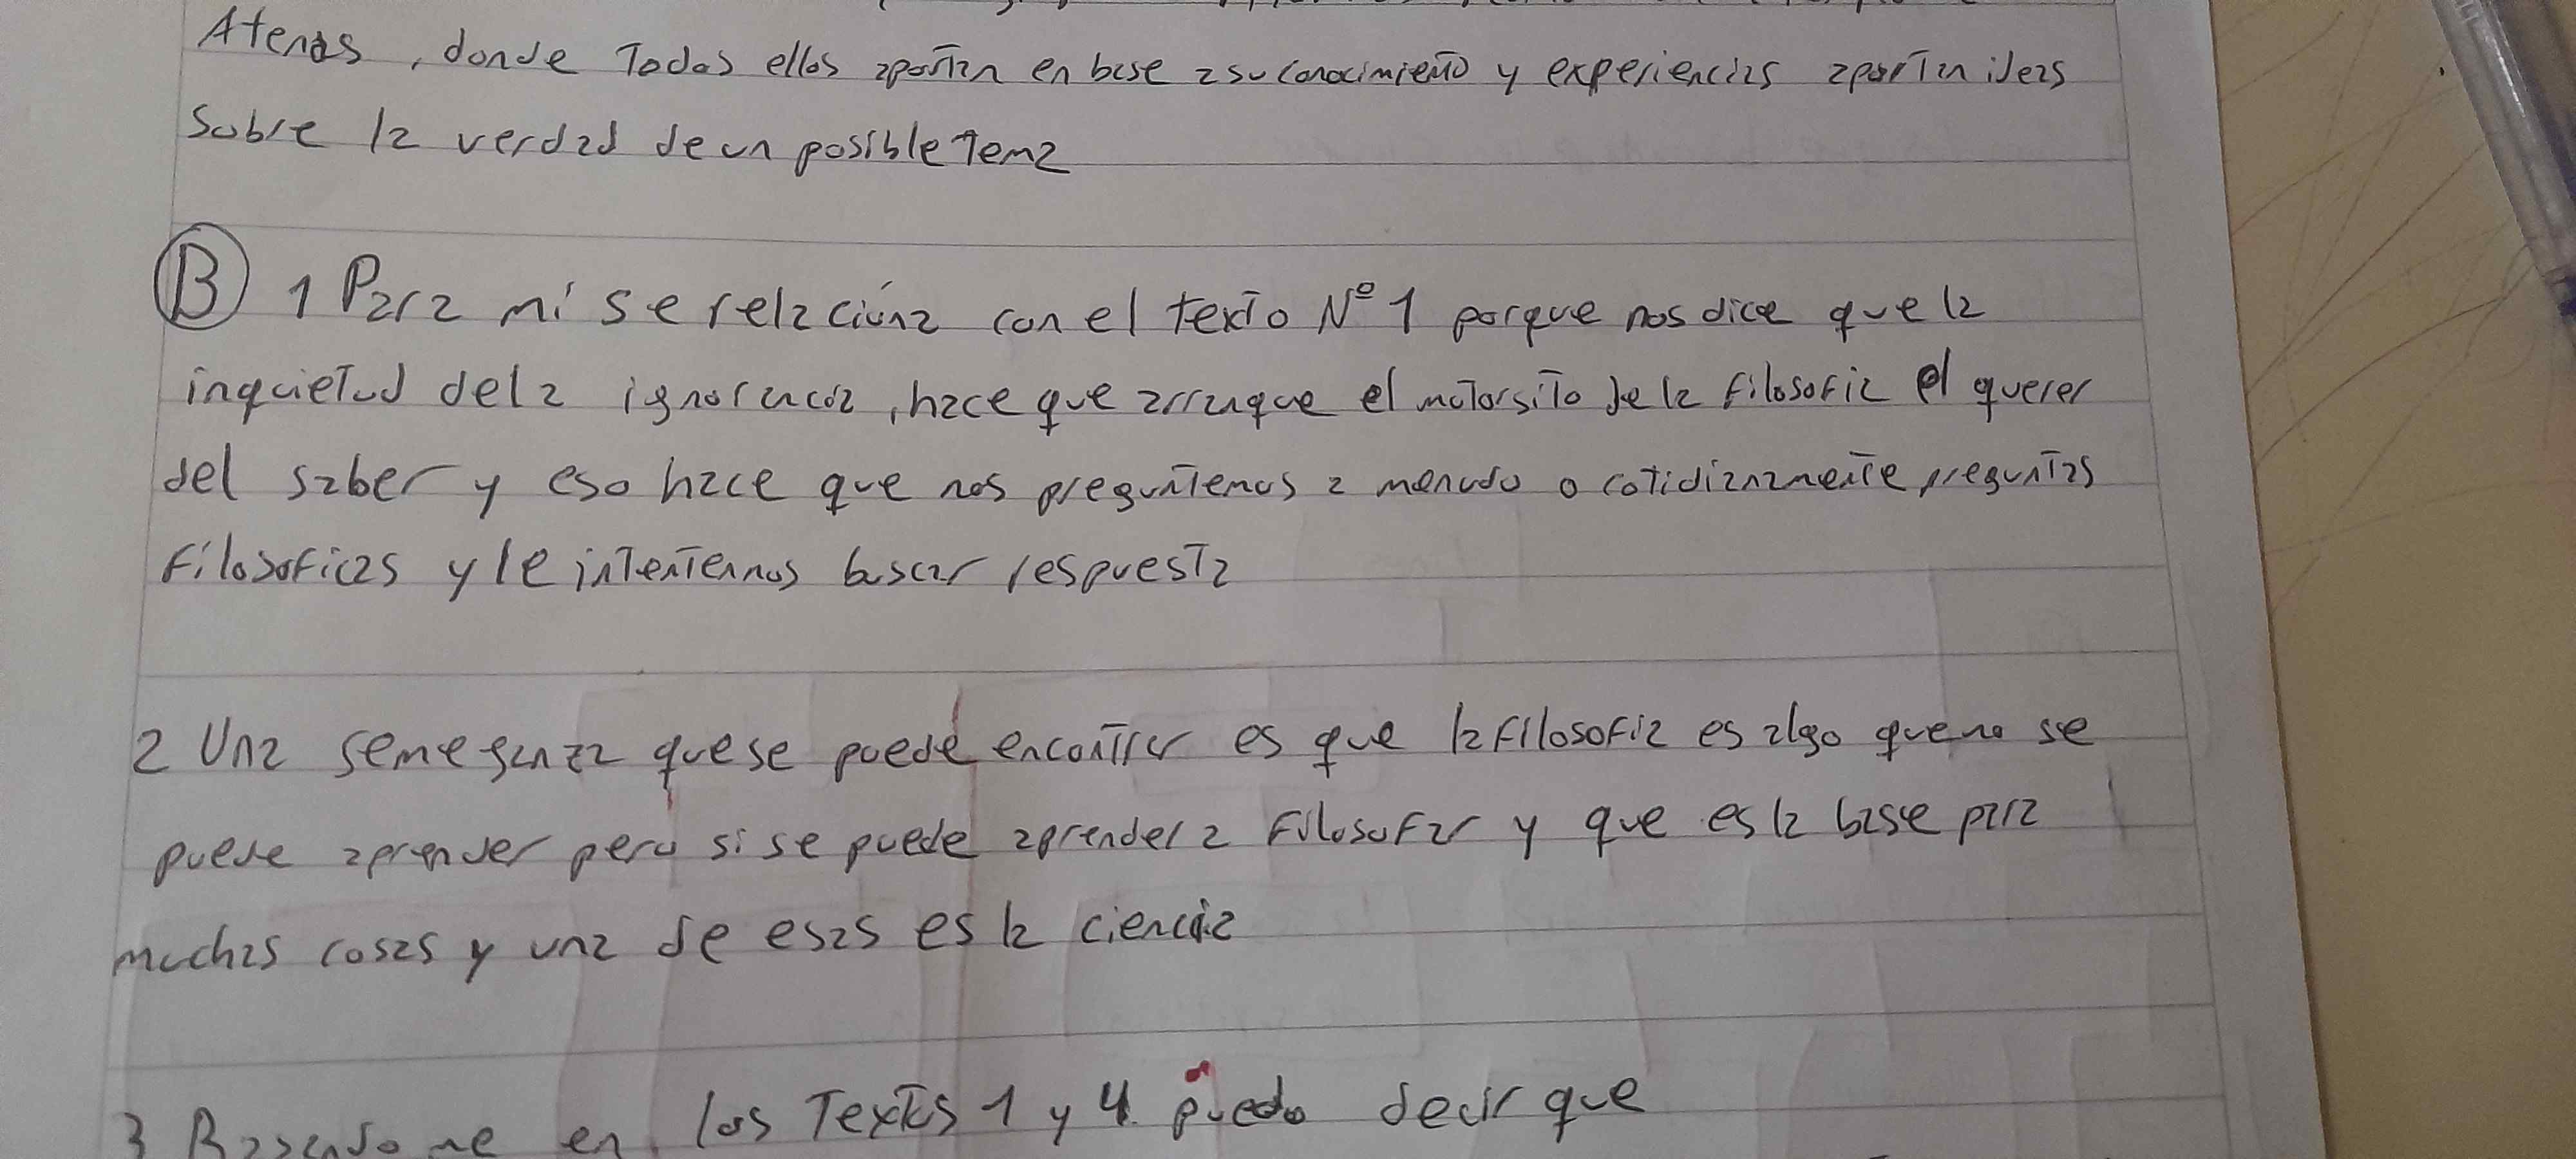 Atenas, donde Todos ellos aportan en base a su conocimiento y experiencias aportan ideas
Sobre la verdad de un posible Tema
B 1 Para mí se relacióna con el texto Nº 1 porque nos dice que la
inquietud de la ignorancia, hace que arranque el motorsito de la filosofia el querer
del saber y eso hace que nos preguntemos a menudo o cotidianamente preguntas
filosoficas y le intentemos buscar respuesta
2 Una semeganza que se puede encontrar es que la filosofia es algo que no se
puede aprender pero si se puede aprender a filosofar y que es la base para
muchas cosas y una de esas es la ciencia
3 Basandome en los Textos 1 y 4 puedo decir que